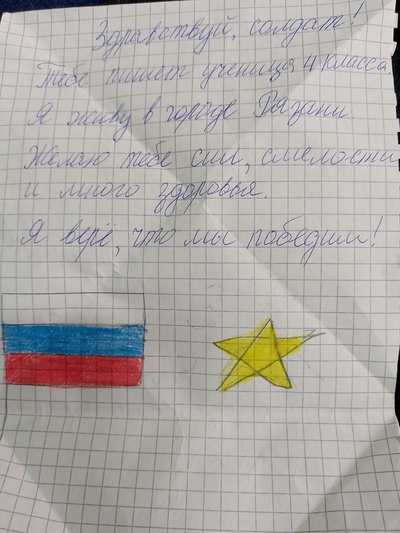 Здравствуй, солдат!
Тебе пишет ученица 4 класса.
Я живу в городе Рязани.
Желаю тебе сил, смелости
и много здоровья.
Я верё, что мы победим!